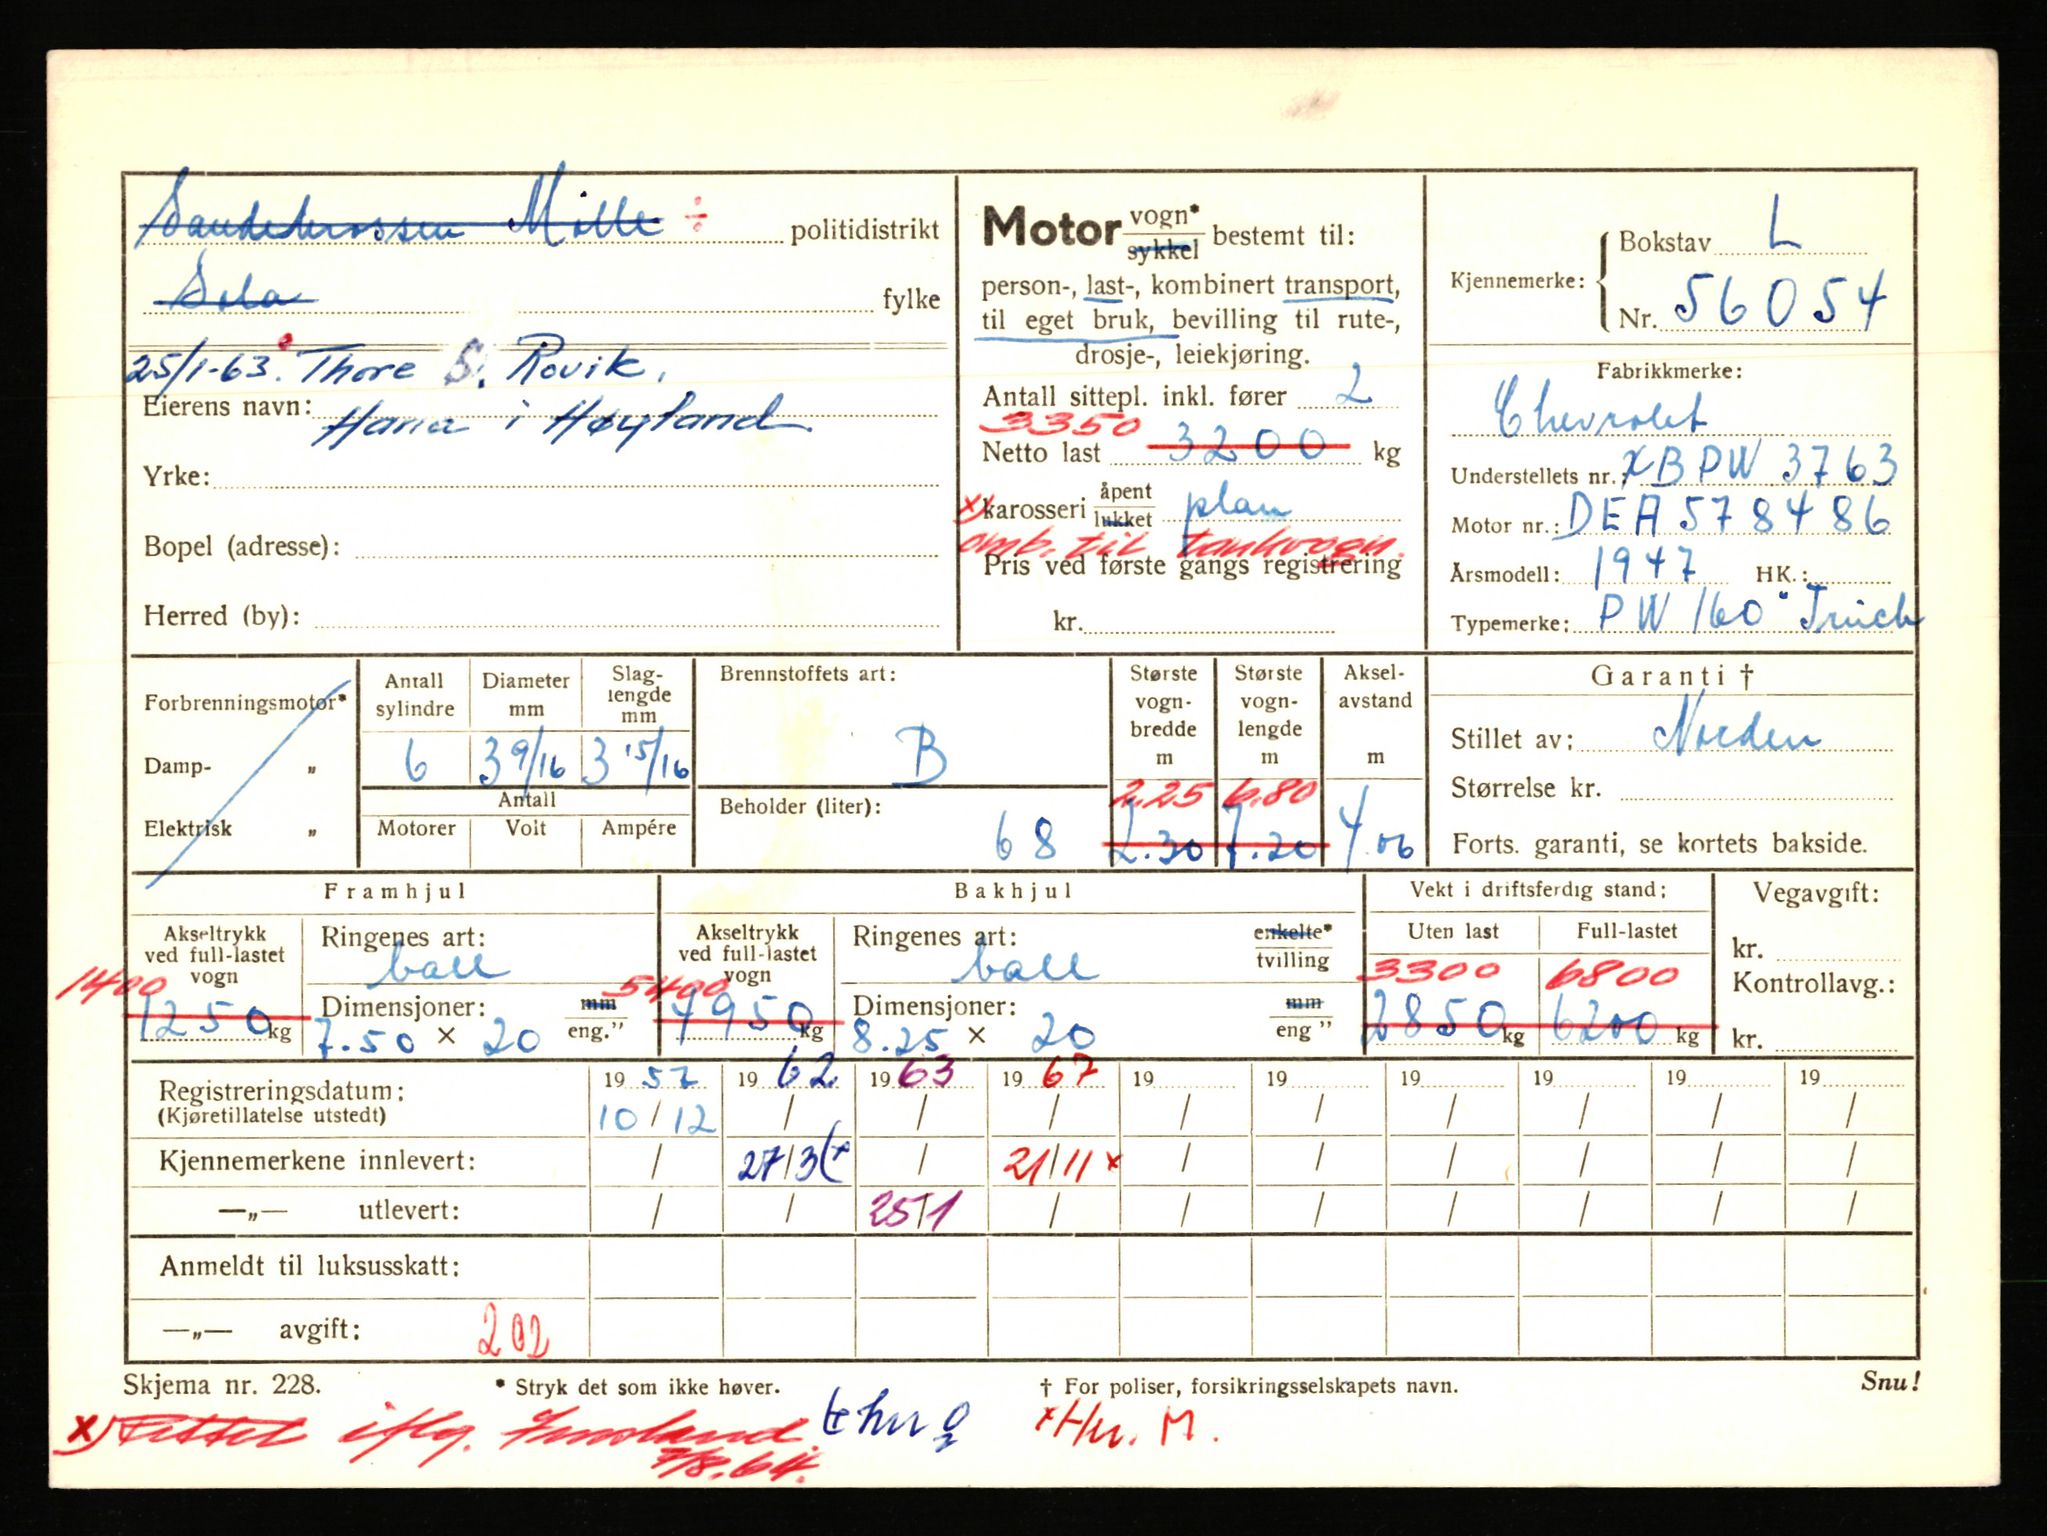 Mølle ÷ politidistrikt
Sola fylke
25/1-63. Thore S. Rovik.
Eierens navn: Hana i Høyland
Yrke:
Bopel (adresse):
Herred (by):
Motor vogn* sykkel bestemt til:
person-, last-, kombinert transport,
til eget bruk, bevilling til rute-,
drosje-, leiekjøring.
Antall sittepl. inkl. fører 2
3350
Netto last 3200 kg
x) karosseri åpent lukket plan
omb. til tankvogn.
Pris ved første gangs registrering
kr.
Kjennemerke: Bokstav L
Nr. 56054
Fabrikkmerke:
Chevrolet
Understellets nr.: XBPW 3763
Motor nr.: DEA 578486
Årsmodell: 1947 HK.:
Typemerke: PW 160 "Truck
Forbrenningsmotor*
Damp- „
Elektrisk „
Antall sylindre
6
Diameter mm
3 9/16
Slag-lengde mm
3 15/16
Antall
Motorer Volt Ampére
Brennstoffets art:
B
Beholder (liter):
68
Største vogn-bredde m
2.25
2.30
Største vogn-lengde m
6.80
7.20
Aksel-avstand m
4.06
Garanti †
Stillet av: Norden
Størrelse kr.
Forts. garanti, se kortets bakside.
Framhjul
Akseltrykk ved full-lastet vogn
1400
1250 kg
Ringenes art:
ball
Dimensjoner: mm
7.50 × 20 eng."
Bakhjul
Akseltrykk ved full-lastet vogn
5400
4950 kg
Ringenes art: enkelte*
ball tvilling
Dimensjoner: mm
8.25 × 20 eng "
Vekt i driftsferdig stand:
Uten last Full-lastet
3300 6800
2850 kg 6200 kg
Vegavgift:
kr.
Kontrollavg.:
kr.
Registreringsdatum: 19 57 19 62 19 63 19 67 19 19 19 19 19 19
(Kjøretillatelse utstedt) 10/12 / / / / / / / / /
Kjennemerkene innlevert: / 27/3 (+ / 21/11 x / / / / / /
—„— utlevert: / / 25/1 / / / / / / /
Anmeldt til luksusskatt:
—„— avgift: 202
Skjema nr. 228. * Stryk det som ikke høver. † For poliser, forsikringsselskapets navn. Snu!
x) iflg. xHu. M.
/8.64.